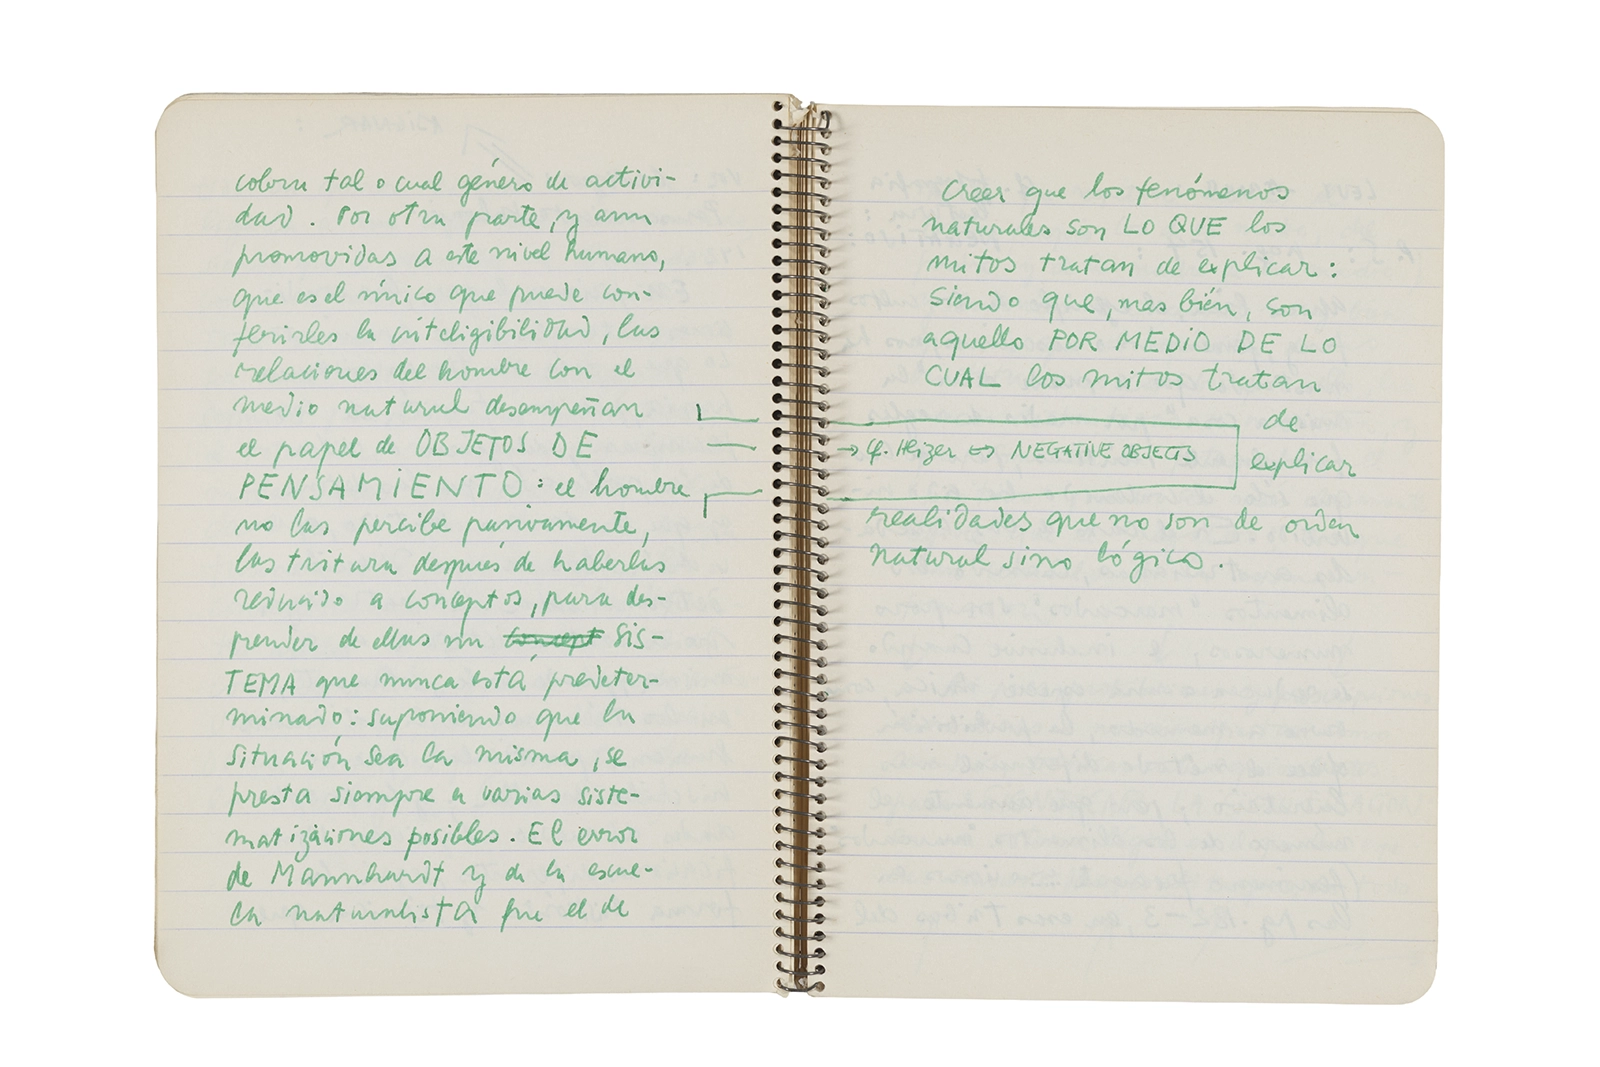 colora tal o cual género de activi-
dad. Por otra parte, y aun
promovidas a este nivel humano,
que es el único que puede con-
ferirles la inteligibilidad, las
relaciones del hombre con el
medio natural desempeñan
el papel de OBJETOS DE
PENSAMIENTO: el hombre
no las percibe pasivamente,
las tritura después de haberlas
reducido a conceptos, para des-
prender de ellas un concept SIS-
TEMA que nunca está predeter-
minado: suponiendo que la
situación sea la misma, se
presta siempre a varias siste-
matizaciones posibles. El error
de Mannhardt y de la escue-
la naturalista fue el de
Creer que los fenómenos
naturales son LO QUE los
mitos tratan de explicar:
siendo que, mas bién, son
aquello POR MEDIO DE LO
CUAL los mitos tratan
de
→ cf. Heizer ↔ NEGATIVE OBJECTS
explicar
realidades que no son de orden
natural sino lógico.